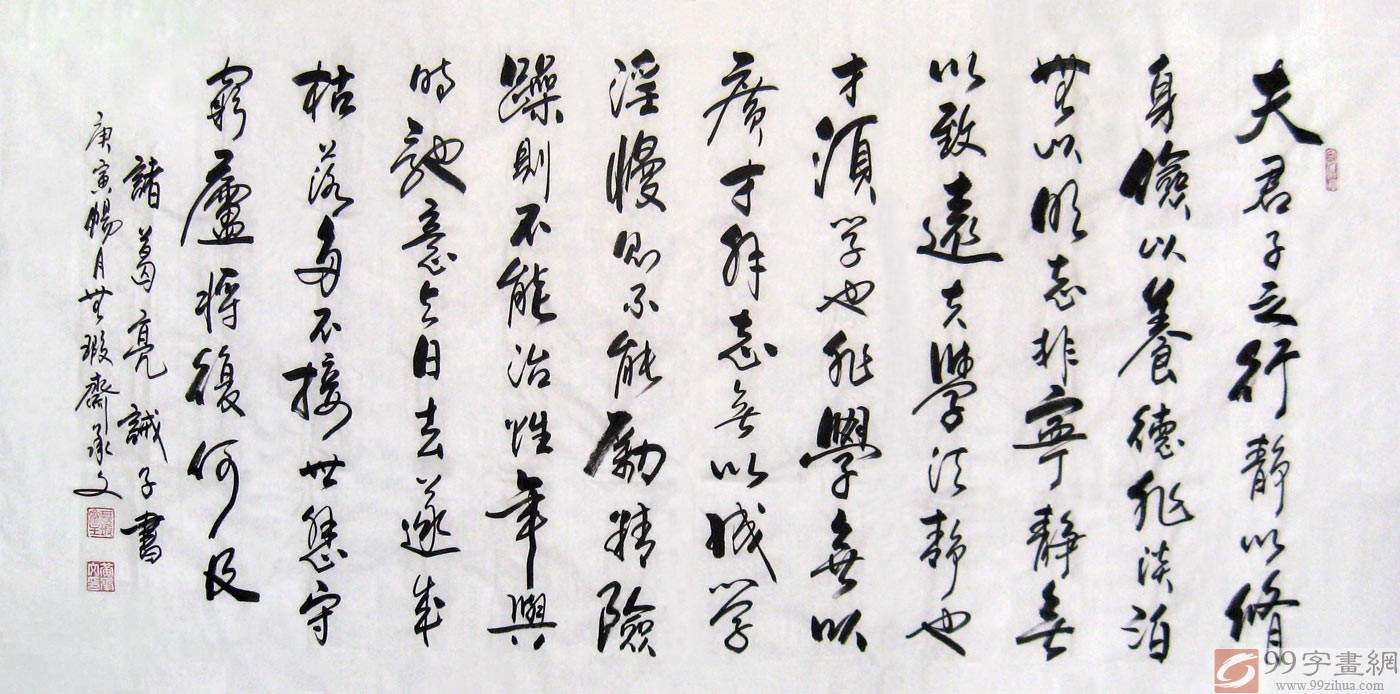 夫君子之行靜以脩
身儉以養德非淡泊
無以明志非寧靜無
以致遠夫學須靜也
才須学也非學無以
廣才非志無以成学
淫慢則不能勵精險
躁則不能冶性年與
時馳意与日去遂成
枯落多不接世悲守
窮廬將復何及
諸葛亮誡子書
庚寅暢月無瑕齋承文
99字畫網
www.99zihua.com